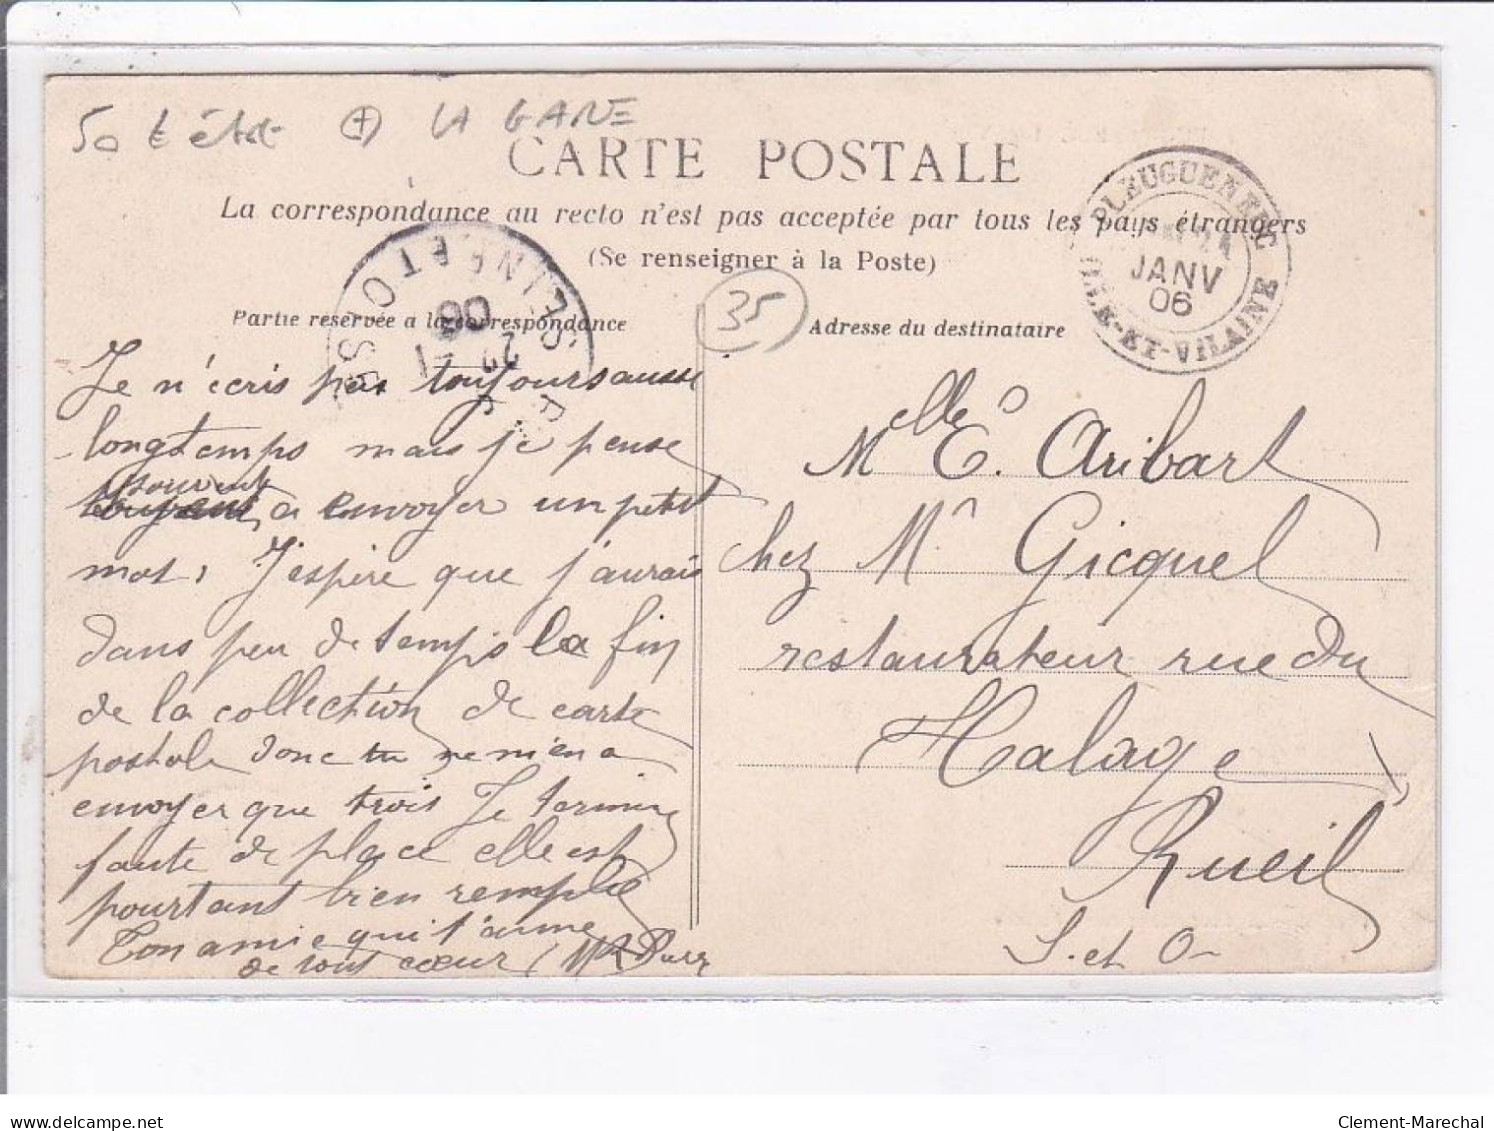 50 t état + LA GARE
CARTE POSTALE
La correspondance au recto n'est pas acceptée par tous les pays étrangers
(Se renseigner à la Poste)
PLEUGUENEUC
21
JANV
06
ILLE-ET-VILAINE
SEINE-ET-OISE
22 - 1
06
35
Partie réservée a la correspondance
Adresse du destinataire
Je n'écris pas toujours aussi
longtemps mais je pense
souvent a envoyer un petit
mot, J'espère que j'aurais
dans peu de temps la fin
de la collection de carte
postale donc tu ne m'en a
envoyer que trois Je termine
faute de place elle est
pourtant bien remplie
Ton amie qui t'aime
de tout cœur
Melle E. Aribart
chez Mr Gicquel
restaurateur rue du
Halage
Rueil
S. et O-
www.delcampe.net
Clement-Marechal